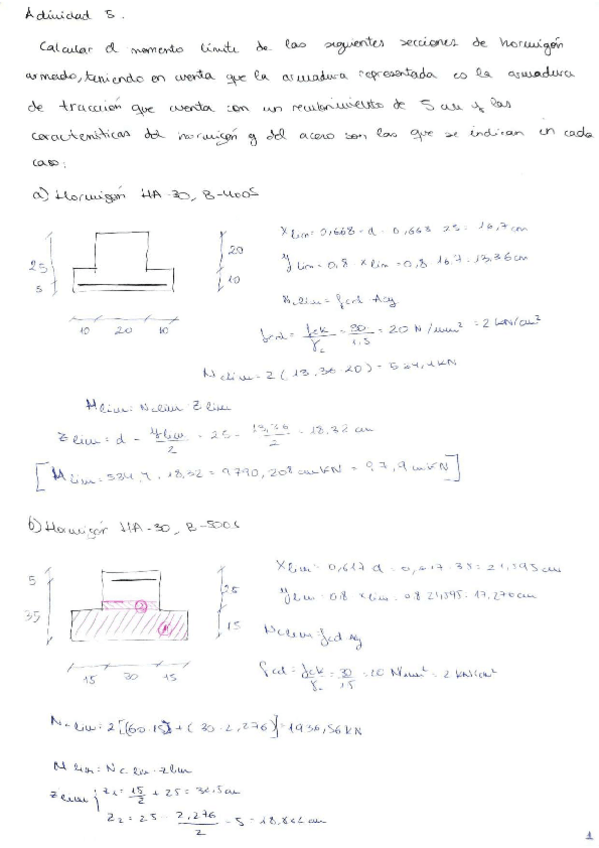 Actividad 5.
Calcular el momento límite de las siguientes secciones de hormigón
armado, teniendo en cuenta que la armadura representada es la armadura
de tracción que cuenta con un recubrimiento de 5 cm y las
características del hormigón y del acero son las que se indican en cada
caso:
a) Hormigón HA-30, B-400S
25
5
20
10
10 20 10
Xlim = 0,668 · d = 0,668 · 25 = 16,7 cm
Ylim = 0,8 · Xlim = 0,8 · 16,7 = 13,36 cm
Nclim = fcd · Acy
fcd = fck/γc = 30/1,5 = 20 N/mm² = 2 kN/cm²
Nclim = 2 (13,36 · 20) = 534,4 kN
Mlim = Nclim · Zlim
Zlim = d - Ylim/2 = 25 - 13,36/2 = 18,32 cm
[Mlim = 534,4 · 18,32 = 9790,208 cmkN = 97,9 mkN]
b) Hormigón HA-30, B-500S
5
35
25
15
15 30 15
2
1
Xlim = 0,617 d = 0,617 · 35 = 21,595 cm
Ylim = 0,8 Xlim = 0,8 · 21,595 = 17,276 cm
Nclim = fcd · Ay
fcd = fck/γc = 30/1,5 = 20 N/mm² = 2 kN/cm²
Nclim = 2 [(60 · 15) + (30 · 2,276)] = 1936,56 kN
Mlim = Nc.lim · zlim
Zlim { Z1 = 15/2 + 25 = 32,5 cm
Z2 = 25 - 2,276/2 - 5 = 18,862 cm
1